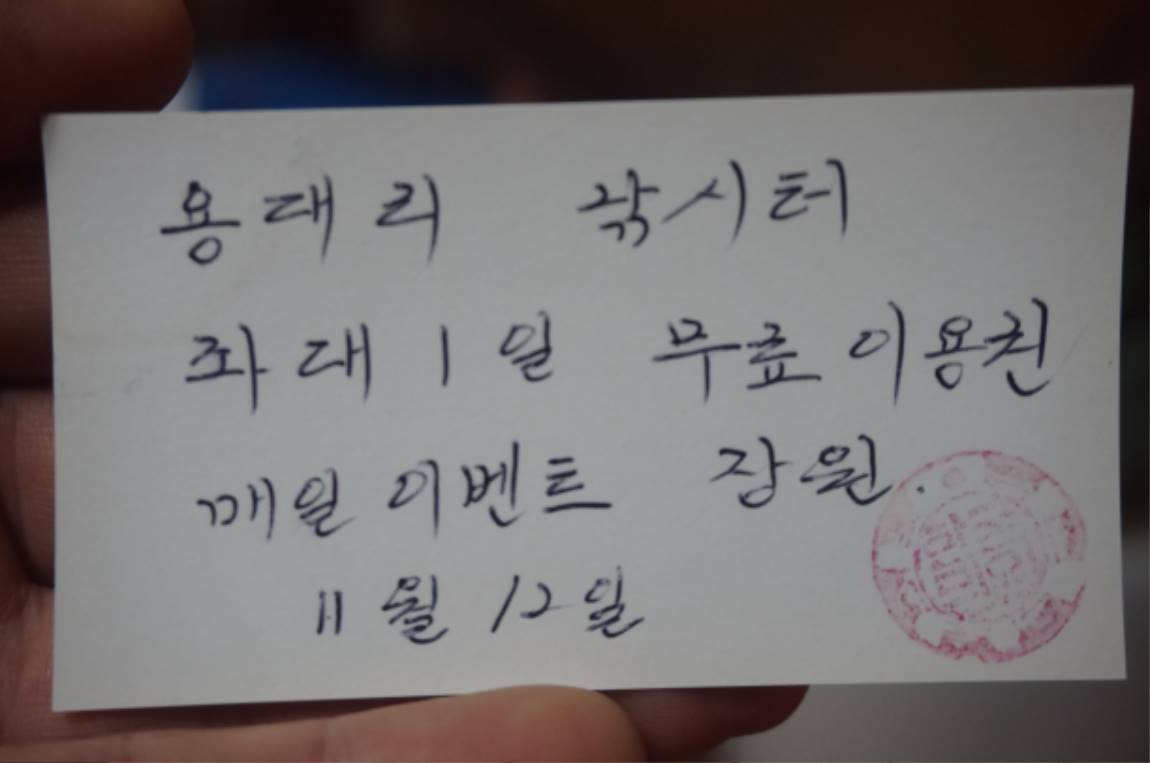 용대리 낚시터
좌대 1일 무료 이용권
매일 이벤트 장원.
11월 12일